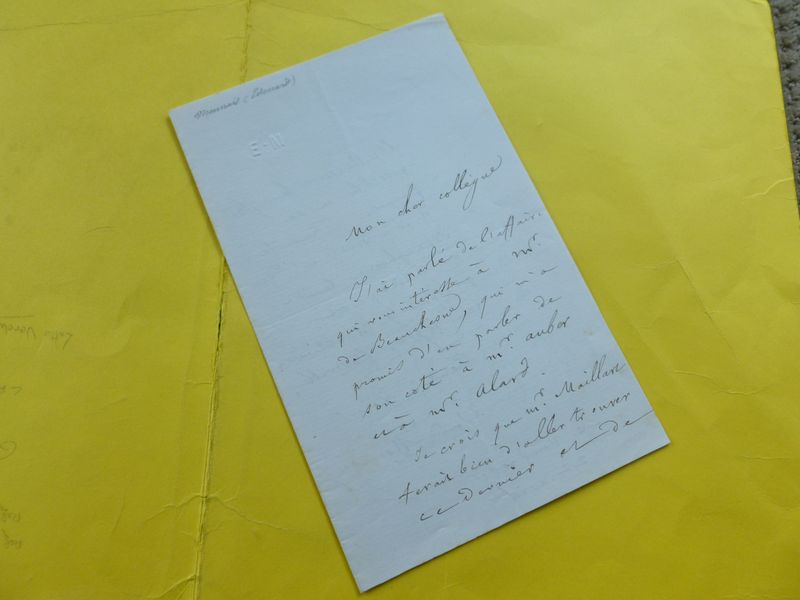 Monnais (Edouard)
E·M
Mon cher collègue
J'ai parlé de l'affaire
qui vous intéresse à Mr.
de Beauchesne, qui m'a
promis d'en parler de
son coté à Mr auber
et à Mr. Alard.
Je crois que Mr. Maillart
ferait bien d'aller trouver
ce dernier et de